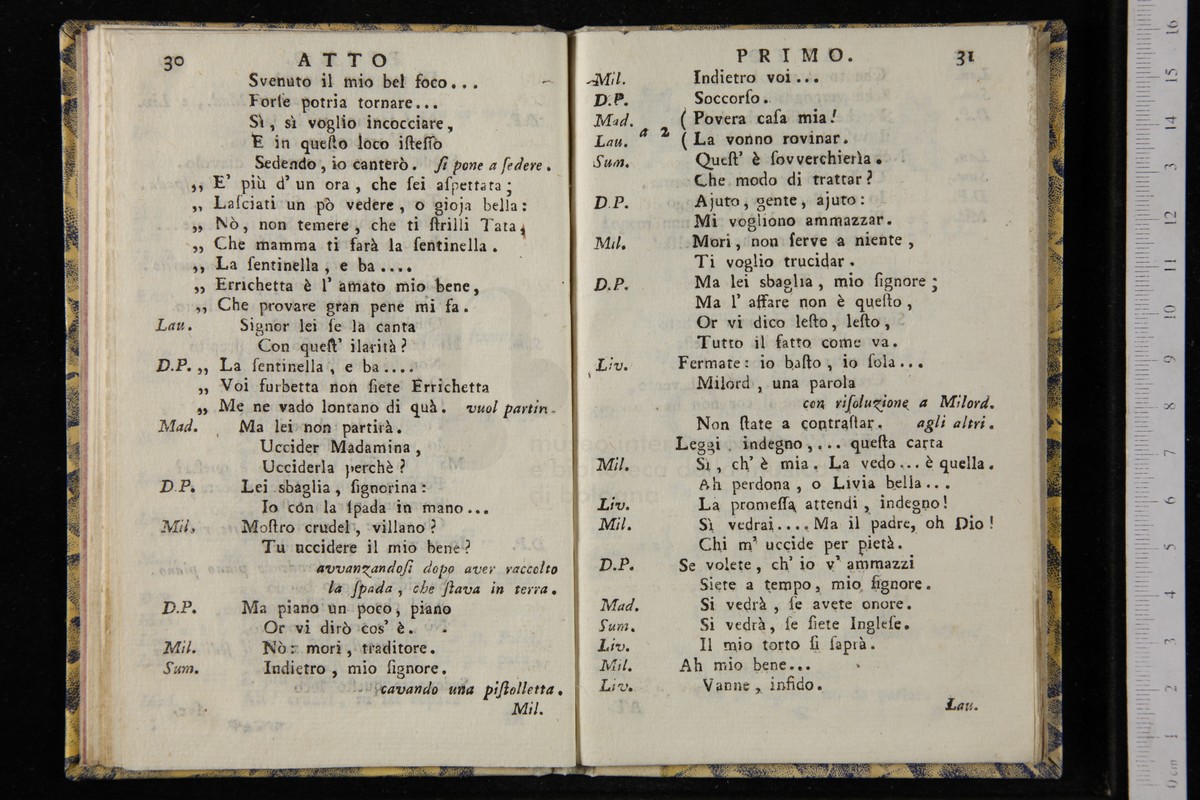 30 ATTO
Svenuto il mio bel foco...
Forſe potria tornare...
Sì, sì voglio incocciare,
E in queſto loco iſteſſo
Sedendo, io canterò. ſi pone a ſedere.
,, E' più d' un ora, che ſei aſpettata;
,, Laſciati un pò vedere, o gioja bella:
,, Nò, non temere, che ti ſtrilli Tata,
,, Che mamma ti farà la ſentinella.
,, La ſentinella, e ba....
,, Errichetta è l' amato mio bene,
,, Che provare gran pene mi fa.
Lau. Signor lei ſe la canta
Con queſt' ilarità?
D.P. ,, La ſentinella, e ba....
,, Voi furbetta non ſiete Errichetta
,, Me ne vado lontano di quà. vuol partir.
Mad. Ma lei non partirà.
Uccider Madamina,
Ucciderla perchè?
D.P. Lei sbaglia, ſignorina:
Io còn la ſpada in mano...
Mil. Moſtro crudel, villano?
Tu uccidere il mio bene?
avvanzandoſi dopo aver raccolto
la ſpada, che ſtava in terra.
D.P. Ma piano un poco, piano
Or vi dirò cos' è.
Mil. Nò: mori, traditore.
Sum. Indietro, mio ſignore.
cavando una piſtolletta.
Mil.
PRIMO. 31
Mil. Indietro voi...
D.P. Soccorſo.
Mad. (Povera caſa mia!
a 2
Lau. (La vonno rovinar.
Sum. Queſt' è ſovverchierìa.
Che modo di trattar?
D.P. Ajuto, gente, ajuto:
Mi vogliono ammazzar.
Mil. Mori, non ſerve a niente,
Ti voglio trucidar.
D.P. Ma lei sbaglia, mio ſignore;
Ma l' affare non è queſto,
Or vi dico leſto, leſto,
Tutto il fatto come va.
Liv. Fermate: io baſto, io ſola...
Milord, una parola
con riſoluzione a Milord.
Non ſtate a contraſtar. agli altri.
Leggi indegno,... queſta carta
Mil. Sì, ch' è mia. La vedo... è quella.
Ah perdona, o Livia bella...
Liv. La promeſſa attendi, indegno!
Mil. Sì vedrai.... Ma il padre, oh Dio!
Chi m' uccide per pietà.
D.P. Se volete, ch' io v' ammazzi
Siete a tempo, mio ſignore.
Mad. Si vedrà, ſe avete onore.
Sum. Si vedrà, ſe ſiete Ingleſe.
Liv. Il mio torto ſi ſaprà.
Mil. Ah mio bene...
Liv. Vanne, infido.
Lau.